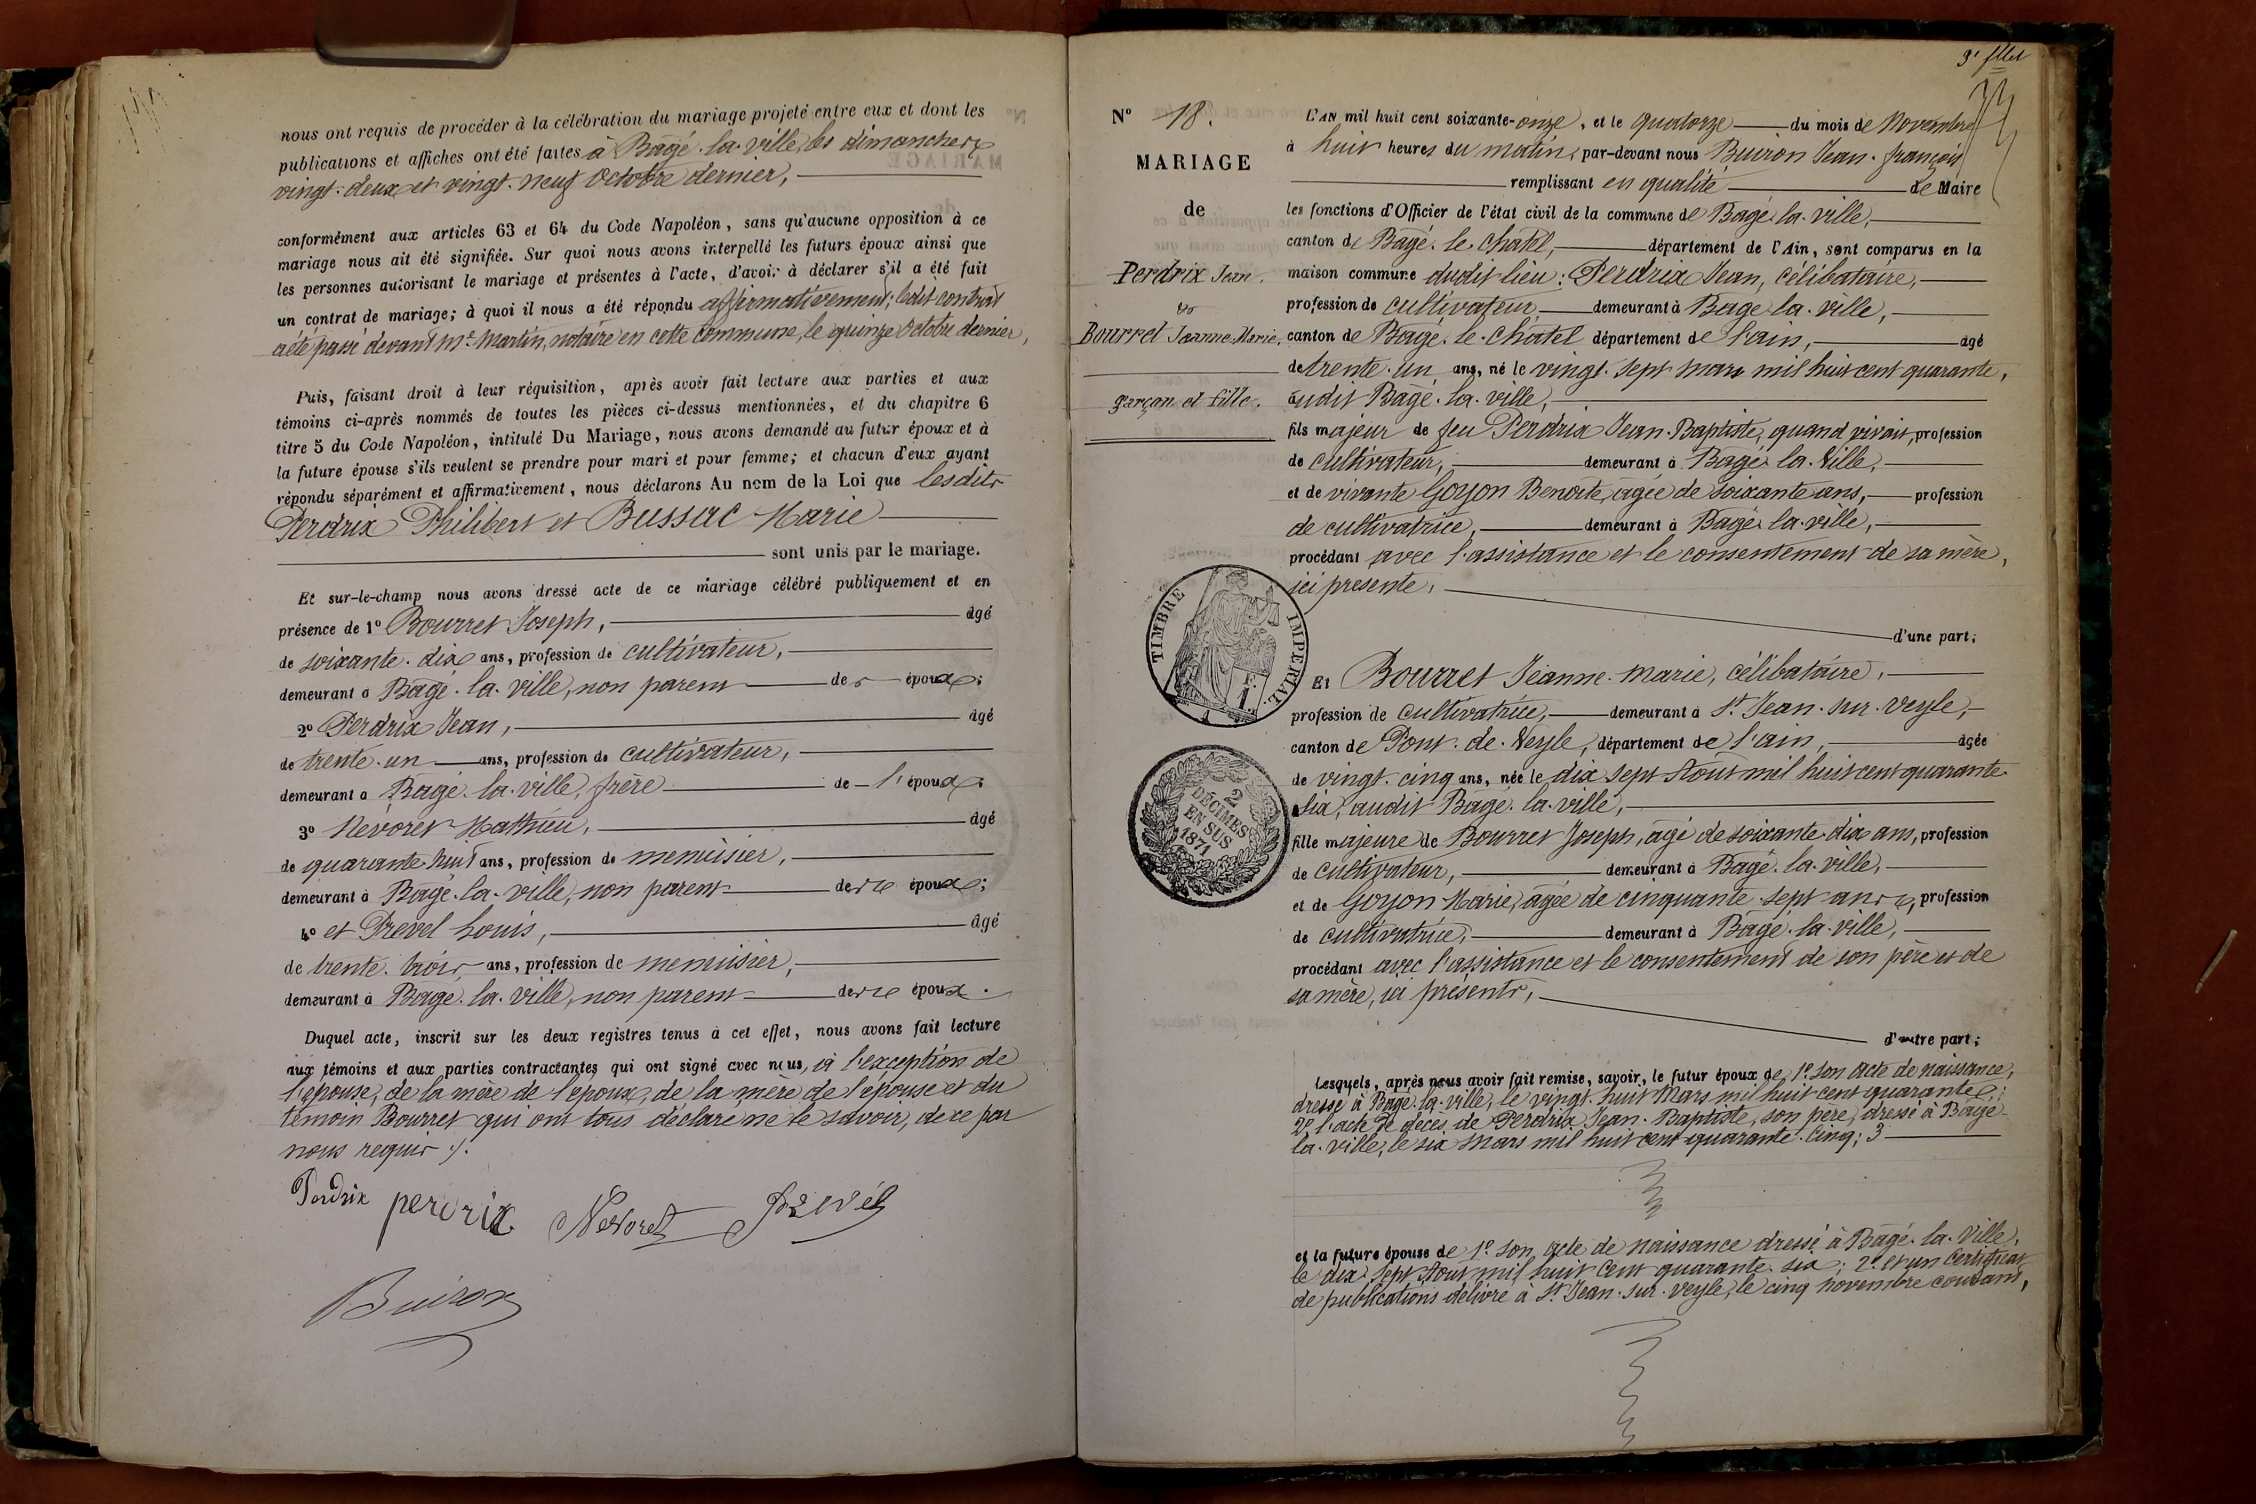 nous ont requis de procéder à la célébration du mariage projeté entre eux et dont les
publications et affiches ont été faites à Bâgé-la-ville, les dimanches
vingt-deux et vingt-neuf octobre dernier,
conformément aux articles 63 et 64 du Code Napoléon, sans qu'aucune opposition à ce
mariage nous ait été signifiée. Sur quoi nous avons interpellé les futurs époux ainsi que
les personnes autorisant le mariage et présentes à l'acte, d'avoir à déclarer s'il a été fait
un contrat de mariage; à quoi il nous a été répondu affirmativement; ledit contrat
a été passé devant Me Martin, notaire en cette commune, le quinze octobre dernier,
Puis, faisant droit à leur réquisition, après avoir fait lecture aux parties et aux
témoins ci-après nommés de toutes les pièces ci-dessus mentionnées, et du chapitre 6
titre 5 du Code Napoléon, intitulé Du Mariage, nous avons demandé au futur époux et à
la future épouse s'ils veulent se prendre pour mari et pour femme; et chacun d'eux ayant
répondu séparément et affirmativement, nous déclarons Au nom de la Loi que lesdits
Perdrix Philibert et Bussac Marie
sont unis par le mariage.
Et sur-le-champ nous avons dressé acte de ce mariage célébré publiquement et en
présence de 1º Bourret Joseph, âgé
de soixante-dix ans, profession de cultivateur,
demeurant à Bâgé-la-ville, non parent des époux;
2º Perdrix Jean, âgé
de trente-un ans, profession de cultivateur,
demeurant à Bâgé-la-ville, frère de l'époux;
3º Nevoret Mathieu, âgé
de quarante-huit ans, profession de menuisier,
demeurant à Bâgé-la-ville, non parent des époux;
4º et Prevel Louis, âgé
de trente-trois ans, profession de menuisier,
demeurant à Bâgé-la-ville, non parent des époux.
Duquel acte, inscrit sur les deux registres tenus à cet effet, nous avons fait lecture
aux témoins et aux parties contractantes qui ont signé avec nous, à l'exception de
l'épouse, de la mère de l'époux, de la mère de l'épouse et du
témoin Bourret qui ont tous déclaré ne le savoir, de ce par
nous requis.
Perdrix perdrix Nevoret Prevél
Buiron
3e fllet
Nº 18.
MARIAGE
de
Perdrix Jean.
et
Bourret Jeanne-Marie,
garçon et fille.
L'AN mil huit cent soixante-onze, et le quatorze du mois de Novembre
à huit heures du matin, par-devant nous Buiron Jean-françois
remplissant en qualité de Maire
les fonctions d'Officier de l'état civil de la commune de Bâgé-la-ville,
canton de Bâgé-le-Châtel, département de l'Ain, sont comparus en la
maison commune dudit lieu: Perdrix Jean, célibataire,
profession de cultivateur, demeurant à Bâgé-la-ville,
canton de Bâgé-le-Châtel département de l'ain, âgé
de trente-un ans, né le vingt-sept mars mil huit cent quarante,
audit Bâgé-la-ville,
fils majeur de feu Perdrix Jean-Baptiste, quand vivait, profession
de cultivateur, demeurant à Bâgé-la-Ville,
et de vivante Goyon Benoite, âgée de soixante ans, profession
de cultivatrice, demeurant à Bâgé-la-ville,
procédant avec l'assistance et le consentement de sa mère,
ici présente,
d'une part;
TIMBRE IMPERIAL
1 F.
Et Bourret Jeanne-marie, célibataire,
profession de cultivatrice, demeurant à St Jean-sur-veyle,
canton de Pont-de-Veyle, département de l'ain, âgée
de vingt-cinq ans, née le dix-sept Août mil huit cent quarante
six, audit Bâgé-la-ville,
fille majeure de Bourret Joseph, âgé de soixante-dix ans, profession
de cultivateur, demeurant à Bâgé-la-ville,
et de Goyon Marie, âgée de cinquante-sept ans, profession
de cultivatrice, demeurant à Bâgé-la-ville,
procédant avec l'assistance et le consentement de son père et de
sa mère, ici présents,
d'autre part;
2
DÉCIMES
EN SUS
1871
Lesquels, après nous avoir fait remise, savoir, le futur époux de 1º son acte de naissance,
dressé à Bâgé-la-ville, le vingt-huit Mars mil huit cent quarante;
2º l'acte de décès de Perdrix Jean-Baptiste, son père, dressé à Bâgé-
la-ville, le six Mars mil huit cent quarante-cinq; 3
et la future épouse de 1º son acte de naissance dressé à Bâgé-la-Ville,
le dix-sept Aout mil huit cent quarante-six; 2º et un certificat
de publications délivré à St Jean-sur-veyle, le cinq novembre courant,